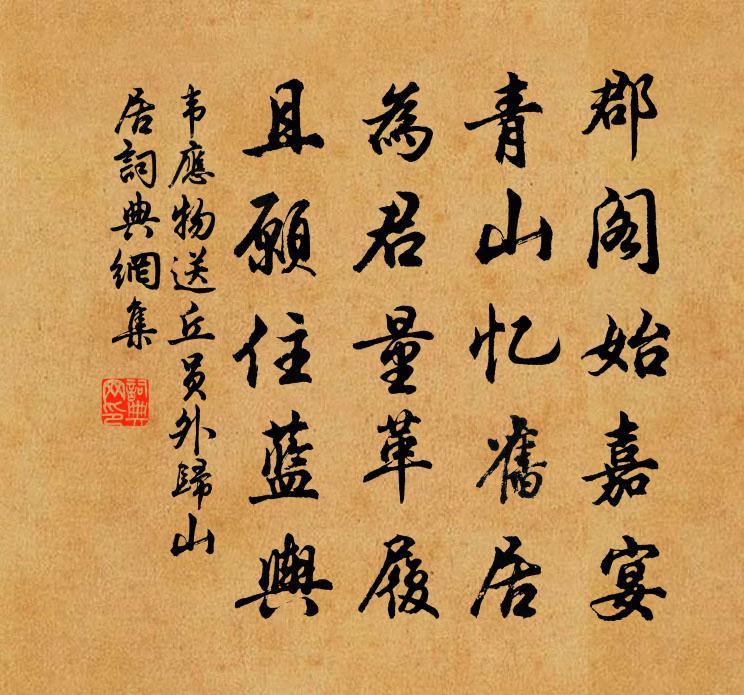 郡阁始嘉宴
青山忆舊居
為君量革履
且願住藍輿
韦應物送丘員外歸山
居詞典網集
詞典
网印